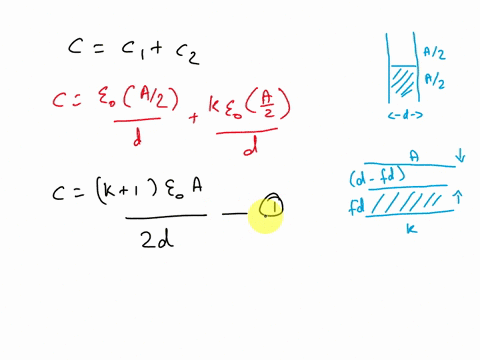 C = C₁ + C₂
C = ε₀(A/2)/d + kε₀(A/2)/d
C = (k+1) ε₀ A / 2d — ①
A/2
A/2
<-d->
A
(d - fd)
fd
K